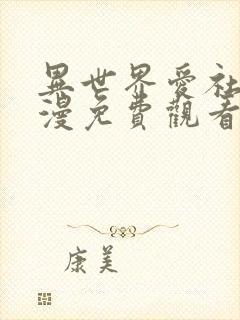 異世界愛社
漫免費觀看
康美